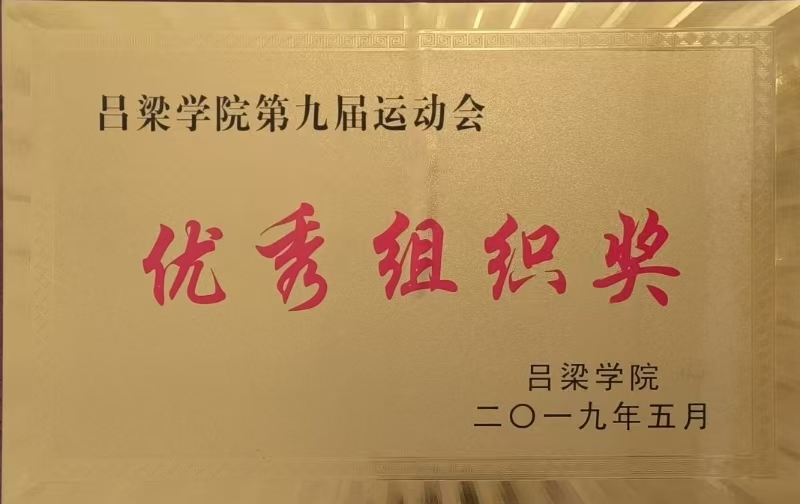 吕梁学院第九届运动会
优秀组织奖
吕梁学院
二〇一九年五月